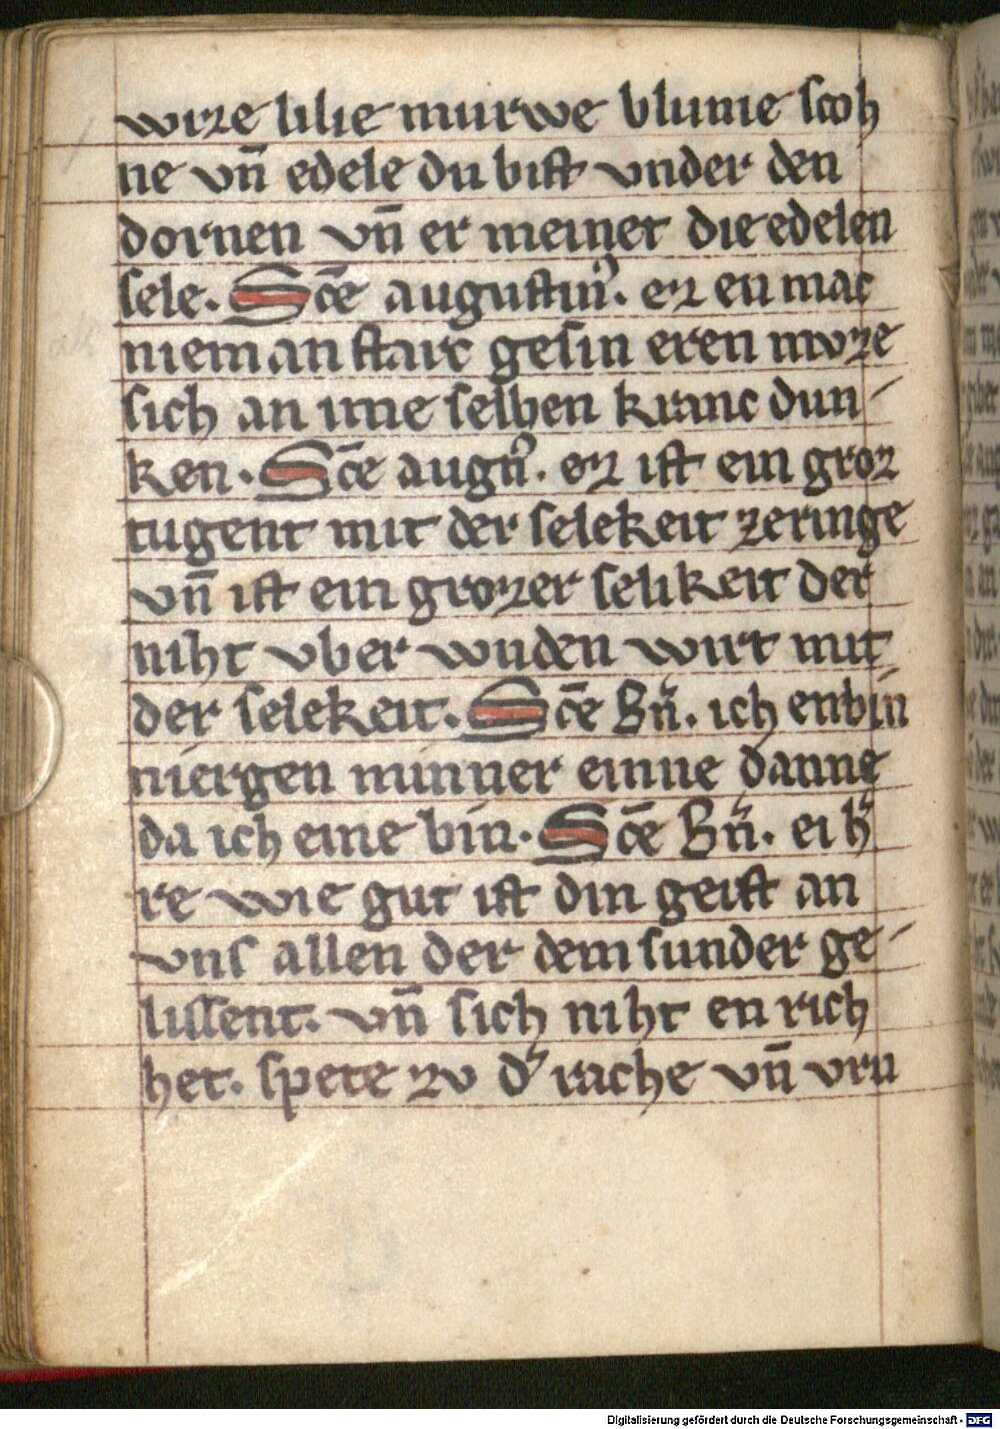 wize lilie murwe blume scoh
ne vn̄ edele du bist vnder den
dornen vn̄ er meinet die edelen
sele. Sc̄e augustin⁹. ez en mac
nieman starc gesin eren mvze
sich an ime selben kranc dun/
ken. Sc̄e augn⁹. ez ist ein groz
tugent mit der selekeit zeringe
vn̄ ist ein grozer selikeit der
niht vber wnden wirt mit
der selekeit. Sc̄e Bn̄. ich enbin
niergen minner einne danne
da ich eine bin. Sc̄e Bn̄. ei h̓
re wie gut ist din geist an
vns allen der dem sunder ge/
lissent. vn̄ sich niht en rich
het. spete zv d̓ rache vn̄ vru
Digitalisierung gefördert durch die Deutsche Forschungsgemeinschaft - DFG